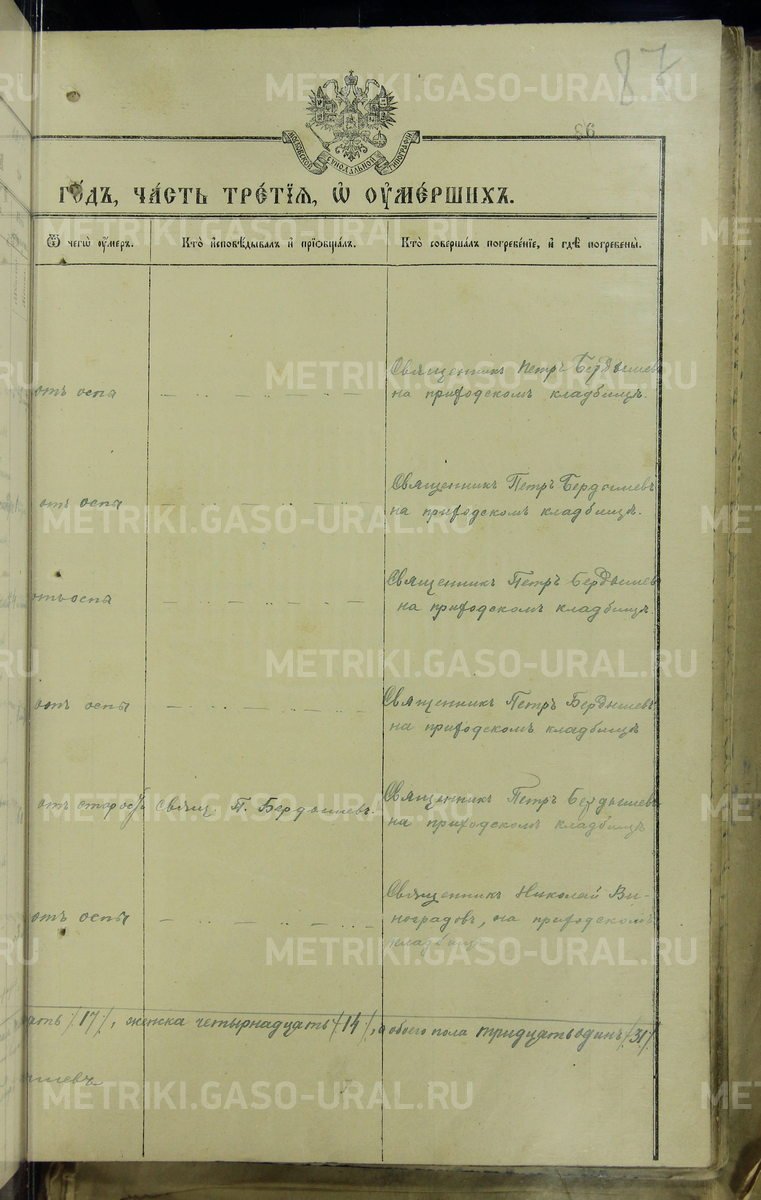 87
93
МОСКОВСКОЙ СѴНОДАЛЬНОЙ ТИПОГРАФІИ
го́дъ, ча́сть тре́тїѧ, ѡ҆ ᲂу҆ме́ршихъ.
Ѿ чегѡ̀ ᲂу҆́меръ.
Кто̀ и҆сповѣ́дывалъ и҆ прїѻбща́лъ.
Кто̀ соверша́лъ погребе́нїе, и҆ гдѣ̀ погребены̀.
отъ оспы
Священникъ Петръ Бердышевъ
на приходскомъ кладбищѣ.
отъ оспы
Священникъ Петръ Бердышевъ
на приходскомъ кладбищѣ.
отъ оспы
Священникъ Петръ Бердышевъ
на приходскомъ кладбищѣ
отъ оспы
Священникъ Петръ Бердышевъ
на приходскомъ кладбищѣ
отъ старость
свящ. П. Бердышевъ.
Священникъ Петръ Бердышевъ
на приходскомъ кладбищѣ
отъ оспы
Священникъ Николай Ви-
ноградовъ, на приходскомъ
кладбищѣ
ать /17/, женска четырнадцать /14/, а обоего пола тридцать одинъ /31/
ышевъ
METRIKI.GASO-URAL.RU